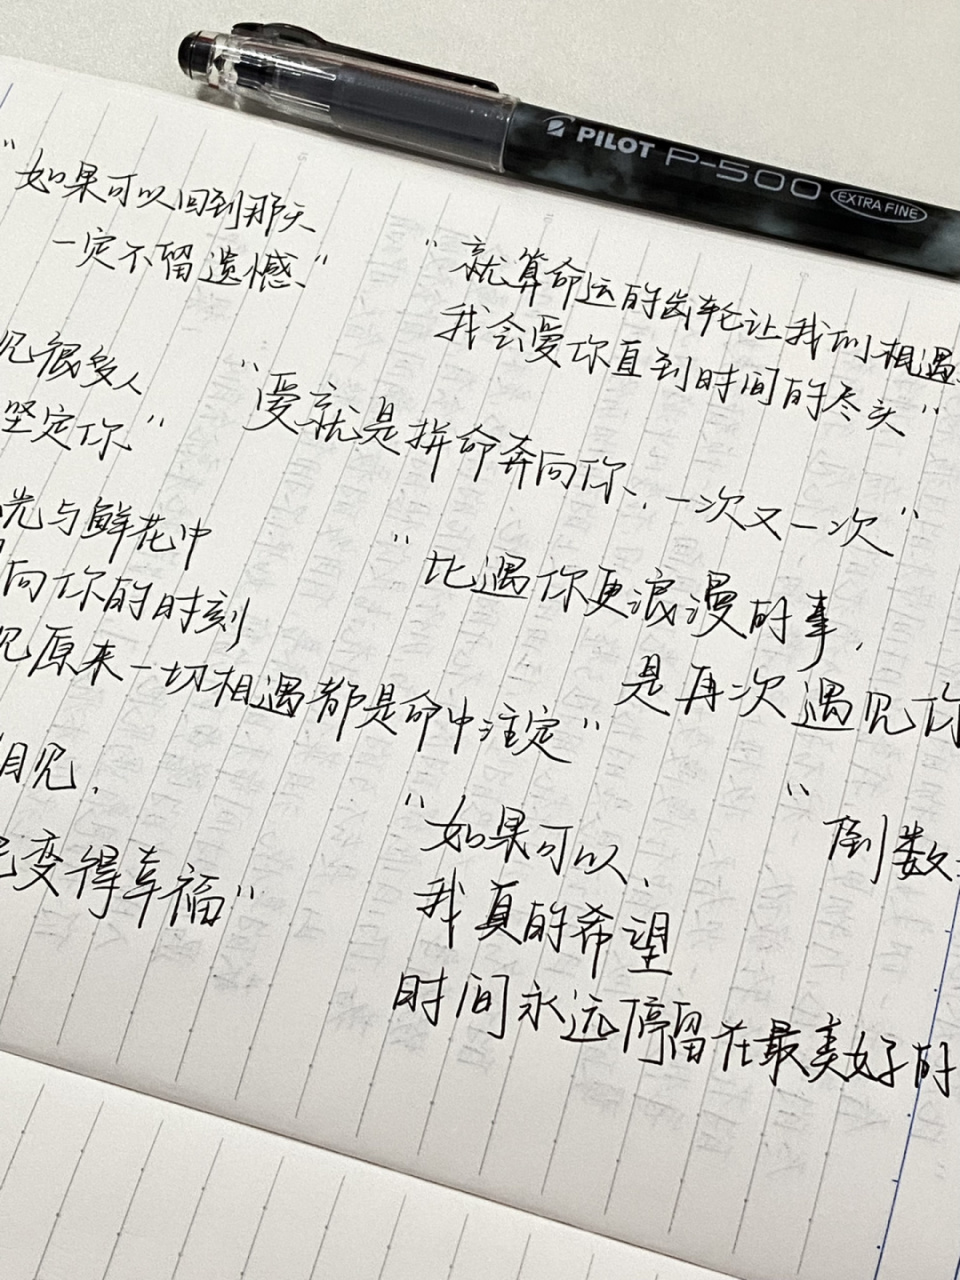 PILOT P-500 EXTRA FINE
“如果可以回到那天
一定不留遗憾、”
“就算命运的齿轮让我们相遇
我会爱你直到时间的尽头”
见很多人
坚定你”
“爱就是拼命奔向你、,一次又一次”
光与鲜花中
向你的时刻
见原来一切相遇都是命中注定”
“比遇你更浪漫的事,
是再次遇见你
相见.
变得幸福”
“如果可以、
我真的希望
时间永远停留在最美好的
“倒数